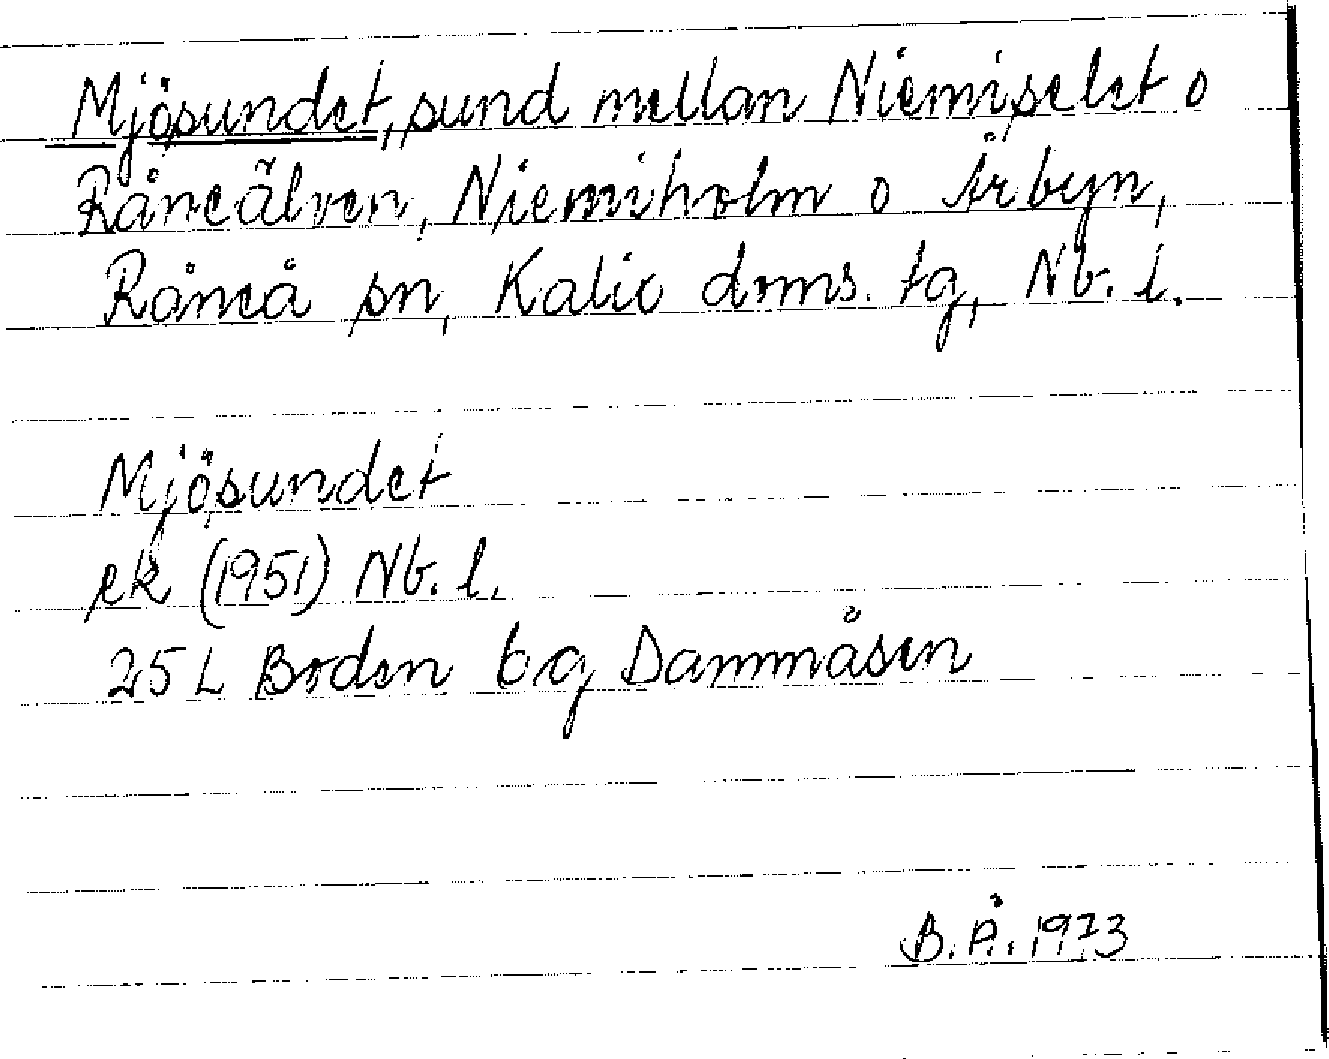 Mjösundet, sund mellan Niemiselet o
Råneälven, Niemiholm o Årbyn,
Råneå sn, Kalix doms. tg, Nb. l.
Mjösundet
ek (1951) Nb. l.
25 L Boden 6g Dammåsen
B.Å. 1973